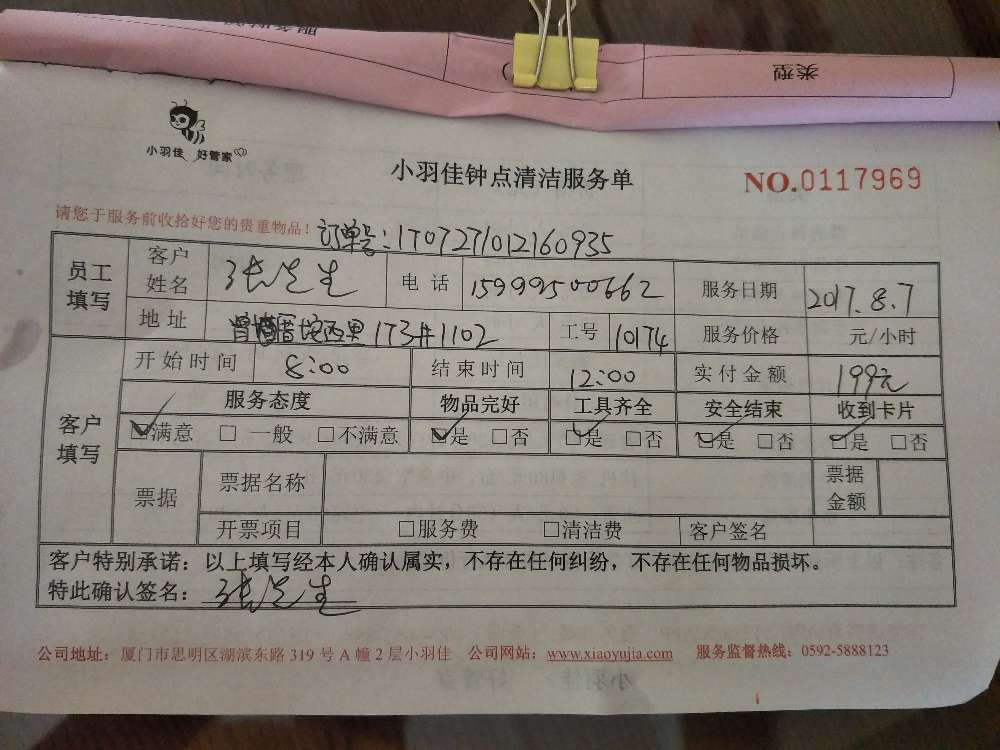 类型
小羽佳 好管家
小羽佳钟点清洁服务单
NO.0117969
请您于服务前收拾好您的贵重物品!
订单号:170727101216093​5
员工填写 客户姓名 张先生 电话 15999500662 服务日期 2017.8.7
地址 西里173#1102 工号 10174 服务价格 元/小时
客户填写 开始时间 8:00 结束时间 12:00 实付金额 199元
服务态度 物品完好 工具齐全 安全结束 收到卡片
☑满意 □一般 □不满意 ☑是 □否 ☑是 □否 ☑是 □否 ☑是 □否
票据 票据名称 票据金额
开票项目 □服务费 □清洁费 客户签名
客户特别承诺:以上填写经本人确认属实,不存在任何纠纷,不存在任何物品损坏。
特此确认签名:张先生
公司地址:厦门市思明区湖滨东路319号A幢2层小羽佳 公司网站:www.xiaoyujia.com 服务监督热线:0592-5888123